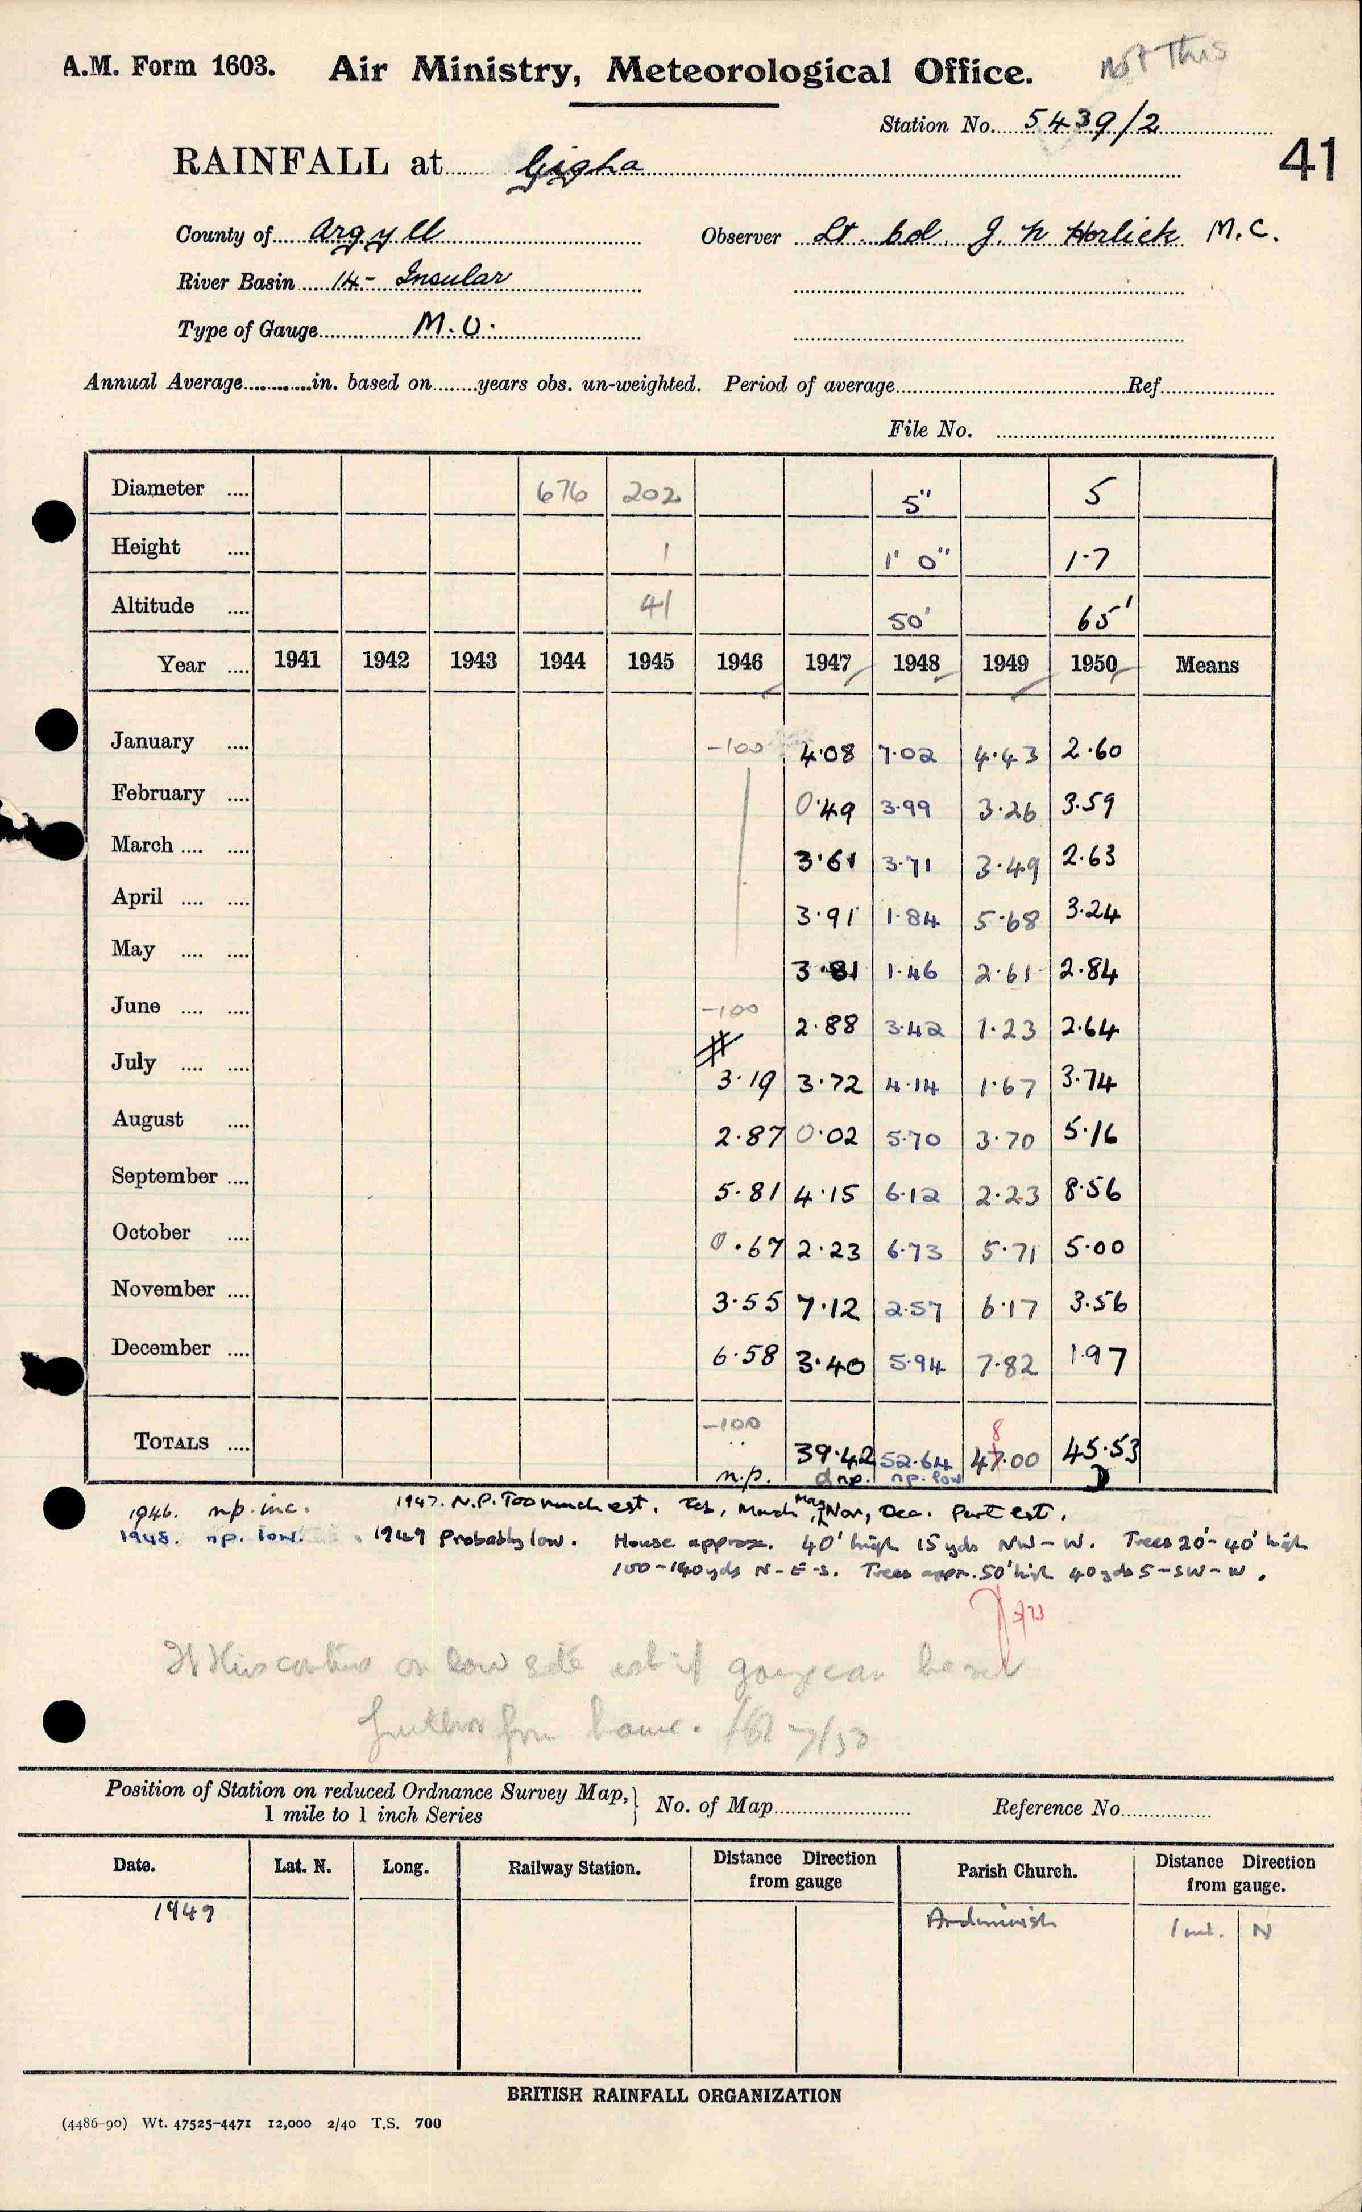 not This
A.M. Form 1603. Air Ministry, Meteorological Office.
Station No. 5439/2
41
RAINFALL at Gigha
County of Argyll Observer Lt. Col. J. N Horlick M.C.
River Basin 14 - Insular
Type of Gauge M.O.
Annual Average............in. based on........years obs. un-weighted. Period of average........ Ref........
File No. ........
Diameter .... 676 202 5" 5
Height .... 1 1' 0" 1-7
Altitude .... 41 50' 65'
Year .... 1941 1942 1943 1944 1945 1946 1947 1948 1949 1950 Means
January .... -100 4.08 7.02 4.43 2.60
February .... 0.49 3.99 3.26 3.59
March .... .... 3.61 3.71 3.49 2.63
April .... .... 3.91 1.84 5.68 3.24
May .... .... 3.81 1.46 2.61 2.84
June .... .... -100 2.88 3.42 1.23 2.64
July .... .... 3.19 3.72 4.14 1.67 3.74
August .... 2.87 0.02 5.70 3.70 5.16
September .... 5.81 4.15 6.12 2.23 8.56
October .... 0.67 2.23 6.73 5.71 5.00
November .... 3.55 7.12 2.57 6.17 3.56
December .... 6.58 3.40 5.94 7.82 1.97
-100 8
TOTALS .... 39.42 52.64 47.00 45.53
n.p. d np. np. low D
1946. np. inc. 1947. N.P. Too much est. Feb, March, May, Nov, Dec. Part est.
1948. np. low. 1949 Probably low. House approx. 40' high 15 yds NW-W. Trees 20'-40' high
100-140 yds N-E-S. Trees appr. 50' high 40 yds S-SW-W.
3/73
If this continues on low side ask if gauge can be set
further from house. 7/50
Position of Station on reduced Ordnance Survey Map, No. of Map........ Reference No........
1 mile to 1 inch Series
Date. Lat. N. Long. Railway Station. Distance Direction from gauge Parish Church. Distance Direction from gauge.
1949 Ardminish 1 ml. N
BRITISH RAINFALL ORGANIZATION
(4486-90) Wt. 47525-4471 12,000 2/40 T.S. 700